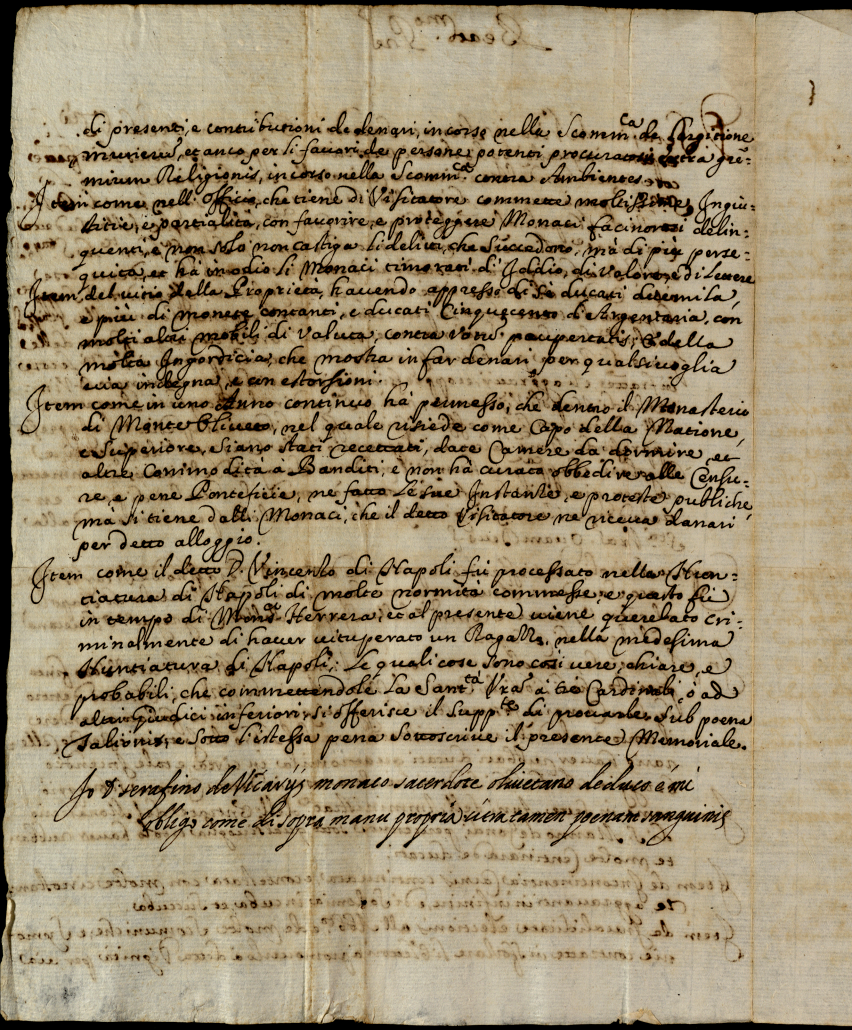 di presenti, e contributioni de denari, in corso nella Scomm.ca de
munerum, et anco per li favori de persone potenti procurati extra gre=
mium Religionis, in corso nella Scomm.ca contra Ambientes
Item come nell'officio, che tiene di Visitatore commette molte Ingiu=
stitie, e partialità, con favorire, e proteggere Monaci facinorosi delin=
quenti, e non solo non castiga li delitti, che succedono, mà di più perse=
quita, et hà in odio li Monaci timorati di Iddio, di valore, e di lettere
Item del vitio della Proprietà, havendo appresso di sè ducati diecimila,
e più di monete contanti, e ducati Cinquecento d'Argentaria, con
molti altri mobili di valuta, contra votum paupertatis, e della
molta Ingordicia, che mostra in far denari per qualsivoglia
via indegna, e con estorsioni.
Item come in uno Anno continuo hà permesso, che dentro il Monasterio
di Monte Oliveto, nel quale risiede come Capo della Natione,
e Superiore, siano stati recettati, date Camere da dormire, et
altre Commodità à Banditi, e non hà curato obbedire alle Censu=
re, e pene Pontificie, ne fatto le sue Instantie, e proteste publiche,
mà si tiene dalli Monaci, che il detto Visitatore ne riceva danari
per detto alloggio.
Item come il detto D. Vincenso di Napoli fù processato nella Nun=
tiatura di Napoli di molte normità commesse, e questo fù
in tempo di Mons.r Herrera, et al presente viene querelato cri=
minalmente di haver vituperato un Ragazzo nella medesima
Nuntiatura di Napoli; Le quali cose sono così vere, chiare, e
probabili, che commettendole La Sant.tà Vra à tre Cardinali, ò ad
altri Giudici inferiori, si offerisce il Supp.te di provarle sub poena
Talionis, e sotto l'istessa pena sottoscrive il presente Memoriale.
Io D serafino de Vicarijs monaco sacerdote olivetano deduco e mi
obligo come di sopra manu propria citra tamen poenam sanguinis